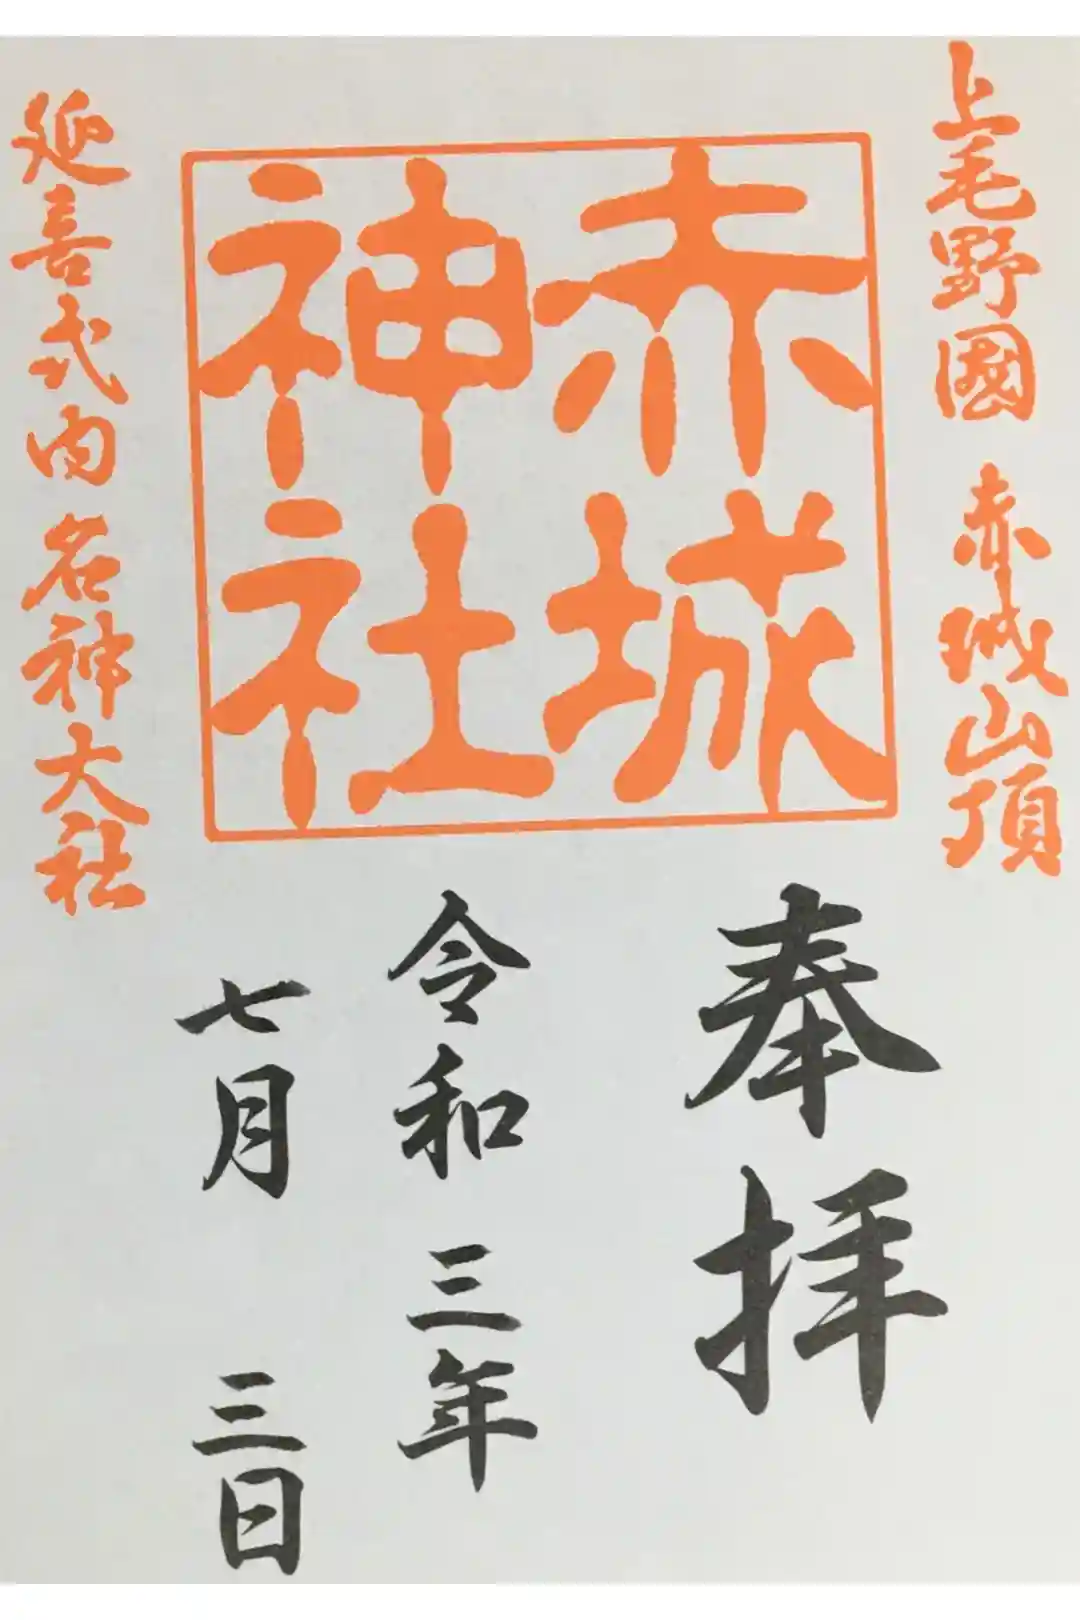 上毛野國 赤城山頂
赤城
神社
延喜式内 名神大社
奉拝
令和 三年
七月 三日